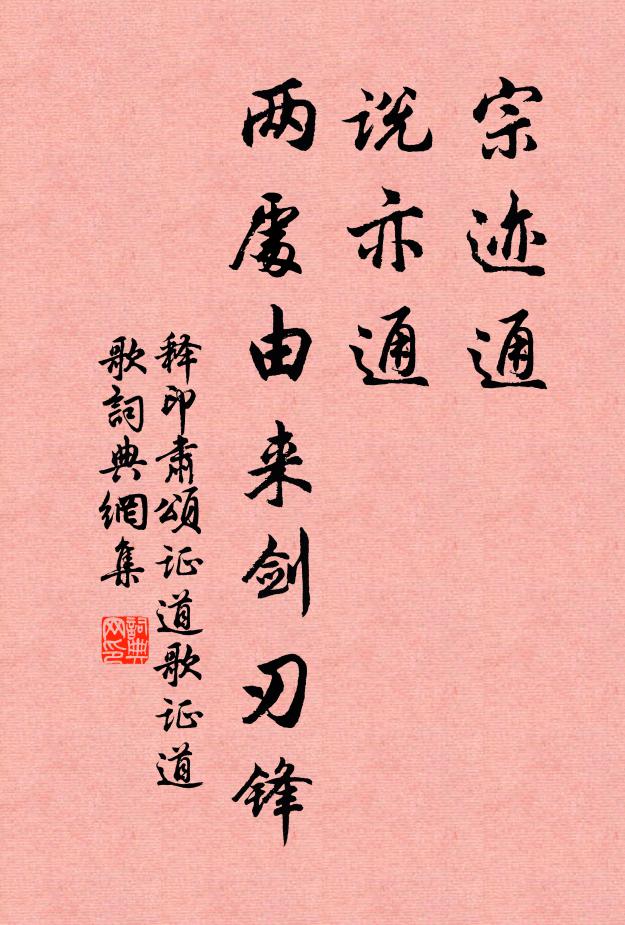 宗迹通
说亦通
两處由来剑刃锋
释印肃頌证道歌证道
歌詞典網集
詞典
网印